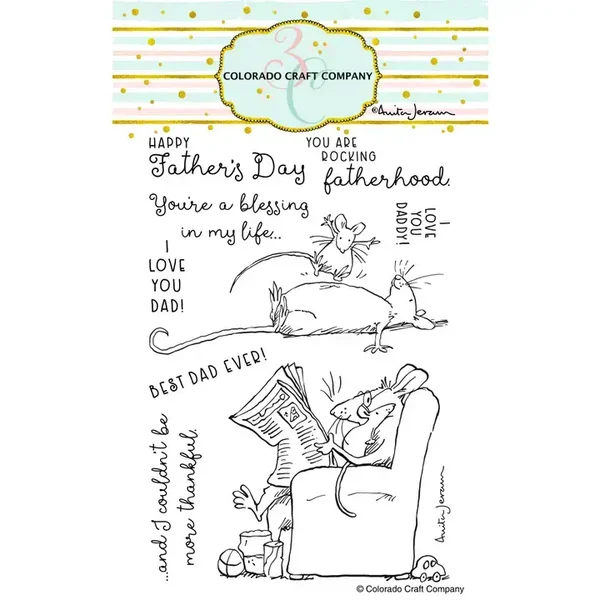 3C
COLORADO CRAFT COMPANY
©Anita Jeram
HAPPY
Father's Day
YOU ARE
ROCKING
fatherhood.
You're a blessing
in my life...
I
LOVE
YOU
DADDY!
I
LOVE
YOU
DAD!
BEST DAD EVER!
...and I couldn't be
more thankful.
Anita Jeram
© Colorado Craft Company